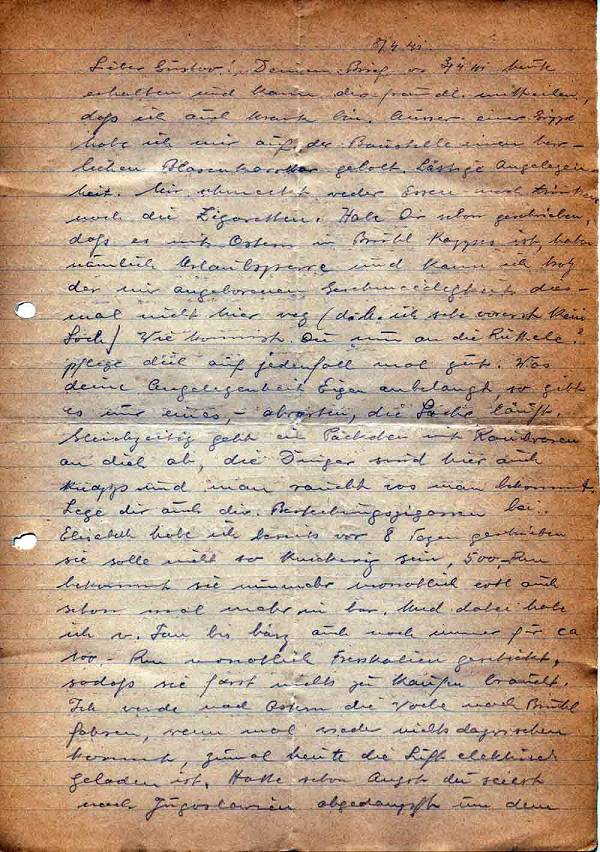 8/4.41.
Lieber Gustav! Deinen Brief v. 3/4.41 heute
erhalten und kann dir freundl. mitteilen,
daß ich auch krank bin. Ausser einer Grippe
habe ich mir auf der Baustelle einen herr-
lichen Blasenkatarrh geholt. Lästige Angelegen-
heit. Mir schmeckt weder Essen noch Trinken
noch die Zigaretten. Habe Dir schon geschrieben,
daß es mit Ostern in Brühl Kappes ist, habe
nämlich Urlaubssperre und kann ich trotz
der mir angeborenen Geschmeidigkeit dies-
mal nicht hier weg (d.h. ich sehe vorerst kein
Loch) Wie kommst Du nun an die
pflege dich auf jedenfall mal gut. Was
deine Angelegenheit Eigen anbelangt, so gibt
es nur eines, - abwarten, die Sache läuft.
Gleichzeitig geht ein Päckchen mit Rauchwaren
an dich ab, die Dinger sind hier auch
knapp und man raucht was man bekommt.
Lege dir auch die Bestechungszigarren bei.
Elisabeth habe ich bereits vor 8 Tagen geschrieben
sie solle nicht so knickerig sein, 500,- Rm
bekommt sie nunmehr monatlich evtl auch
schon mal mehr in bar. Und dabei habe
ich v. Jan bis März auch noch immer für ca
100.- Rm monatlich Fressalien geschickt,
sodaß sie fasst nichts zu kaufen braucht.
Ich werde nach Ostern die Woche nach Brühl
fahren, wenn mal wieder nichts dazwischen
kommt, zumal heute die Luft elektrisch
geladen ist. Hatte schon Angst du seiest
nach Jugoslawien abgedampft um dem